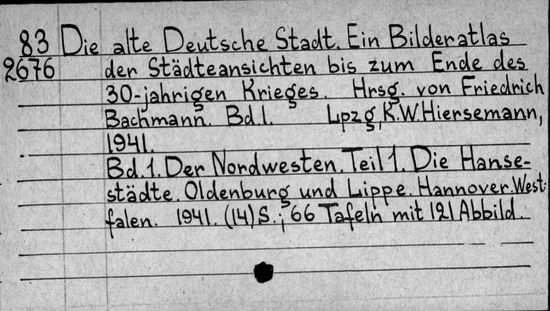 83 Die alte Deutsche Stadt. Ein Bilderatlas
2676 der Städteansichten bis zum Ende des
30-jahrigen Krieges. Hrsg. von Friedrich
Bachmann. Bd.1. Lpzg, K.W.Hiersemann,
1941.
Bd.1. Der Nordwesten. Teil 1. Die Hanse-
städte. Oldenburg und Lippe. Hannover. West-
falen. 1941. (14) S.; 66 Tafeln mit 121 Abbild.